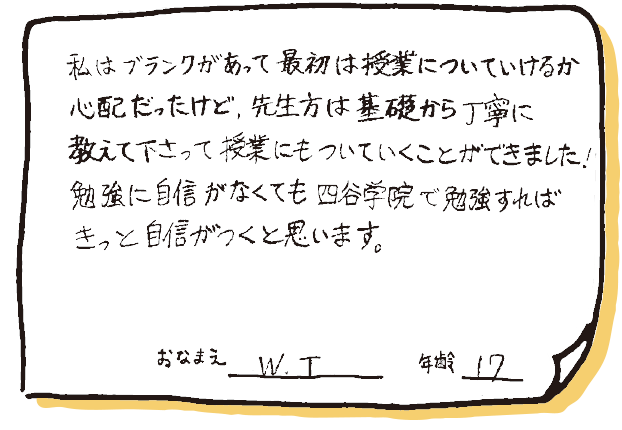 私はブランクがあって最初は授業についていけるか
心配だったけど、先生方は基礎から丁寧に
教えて下さって授業にもついていくことができました!
勉強に自信がなくても四谷学院で勉強すれば
きっと自信がつくと思います。
おなまえ W.T 年齢 17